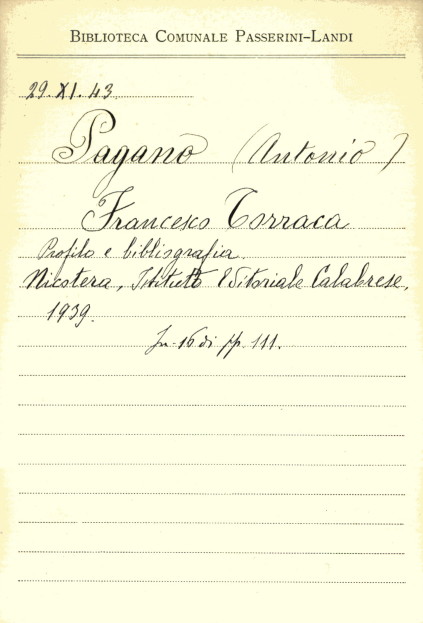 BIBLIOTECA COMUNALE PASSERINI-LANDI
29. XI. 43.
Pagano (Antonio)
Francesco Torraca
Profilo e bibliografia.
Nicotera, Istituto Editoriale Calabrese,
1939.
In-16 di pp. 111.